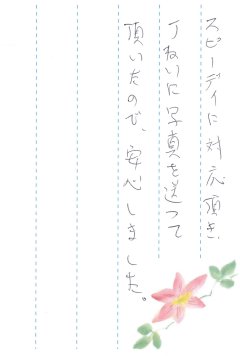 スピーディに対応頂き、
丁ねいに写真を送って
頂いたので、安心しました。